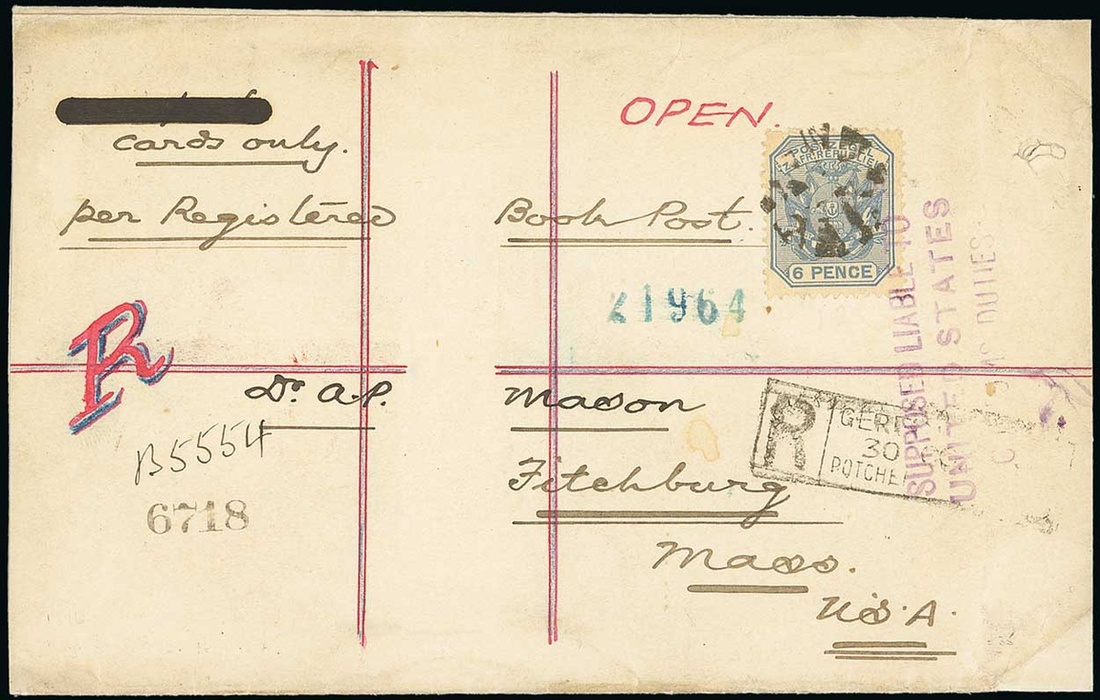 OPEN.
cards only.
per Registered Book Post.
POSTZEGEL
Z. AFR. REPUBLIEK
6 PENCE
21964
R
Dr A.P. Mason
Fitchburg
Mass.
U.S.A.
B5554
6718
R
30
POTCHE
SUPPOSED LIABLE TO
UNITED STATES
DUTIES.